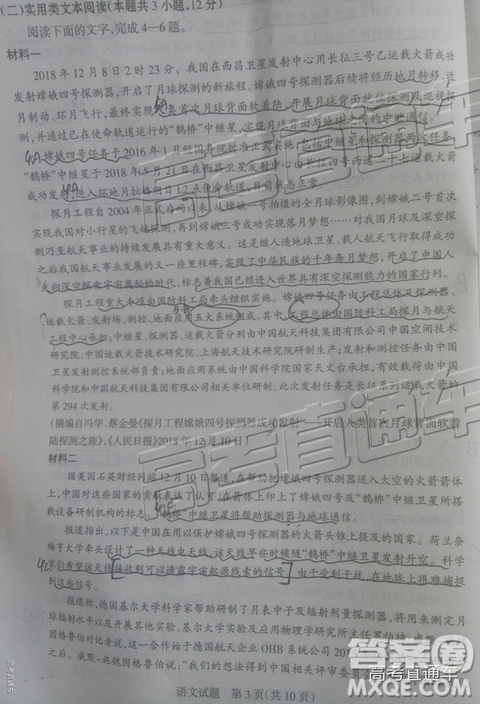 (二)实用类文本阅读(本题共3小题,12分)
阅读下面的文字,完成4—6题。
材料一
2018年12月8日2时23分,我国在西昌卫星发射中心用长征三号乙运载火箭成功
发射嫦娥四号探测器,开启了月球探测的新旅程。嫦娥四号探测器后续将经历地月转移、近
月制动、环月飞行,最终实现人类首次月球背面软着陆,开展月球背面就位探测及巡视探
测,并通过已在使命轨道运行的“鹊桥”中继星,实现月球背面与地球之间的中继通信。
嫦娥四号任务于2016年1月经国务院批准正式实施,包括中继星和探测器两次任务。
“鹊桥”中继星于2018年5月21日在西昌卫星发射中心由长征四号丙遥二十七运载火箭
成功发射,进入环地月拉格朗日L2点使命轨道,目前状态正常。
探月工程自2004年正式启动以来,从嫦娥一号拍摄的全月球影像图,到嫦娥二号首次
实现我国对小行星的飞越探测,再到嫦娥三号成功实现落月梦想……对我国月球及深空探
测乃至航天事业的持续发展具有重大意义。这是继人造地球卫星、载人航天飞行取得成功
之后我国航天事业发展的又一座里程碑,实现了中华民族的千年奔月梦想,开启了中国人
走向深空探索宇宙奥秘的时代,标志着我国已经进入世界具有深空探测能力的国家行列。
探月工程重大专项由国防科工局牵头组织实施。嫦娥四号任务由工程总体及探测器、
运载火箭、发射场、测控、地面应用五大系统组成。其中,工程总体由国防科工局探月与航天
工程中心承担;中继星、探测器、运载火箭分别由中国航天科技集团有限公司中国空间技术
研究院、中国运载火箭技术研究院、上海航天技术研究院研制生产;发射和测控任务由中国
卫星发射测控系统部负责;地面应用系统由中国科学院国家天文台承担,有效载荷由中国
科学院和中国航天科技集团有限公司相关单位研制。此次发射任务是长征系列运载火箭的
第294次发射。
(摘编自冯华、蔡金曼《探月工程嫦娥四号探测器成功发射——开启人类首次月球背面软着
陆探测之旅》,《人民日报》2018年12月10日)
材料二
据美国石英财经网站12月10日报道,在帮助把嫦娥四号探测器送入太空的火箭箭体
上,中国对这些国家的贡献表达了认可:在箭体上印上了嫦娥四号及“鹊桥”中继卫星所搭
载设备研制机构的标志,“鹊桥”中继卫星将帮助探测器与地球通信。
报道指出,以下是中国在用以保护嫦娥四号探测器的火箭头锥上提及的国家。荷兰奈
梅亨大学牵头设计了一种无线电天线,该天线早些时候随“鹊桥”中继卫星发射升空。科学
家们希望该天线接收到可以透露宇宙起源线索的信号,由于受到干扰,在地球上很难捕捉
到这些信号。
报道称,德国基尔大学科学家帮助研制了月表中子及辐射剂量探测器,将用来测定月
球辐射水平以及月球上的水含量。基尔大学实验及应用物理学研究所主任罗伯特·威默-施
因格鲁伯对记者说,这一合作始于德国航天企业OHB系统公司201
之后。威默-施魏因格鲁伯说:“我们的想法得到中国相关评审委员会
语文试题 第3页(共10页)
高考直通车
答案圈
MXQE.COM
高考直通车